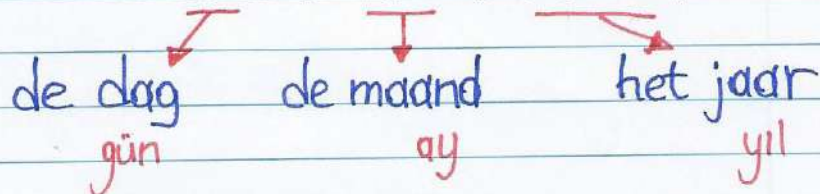 de dag de maand het jaar
gün ay yıl